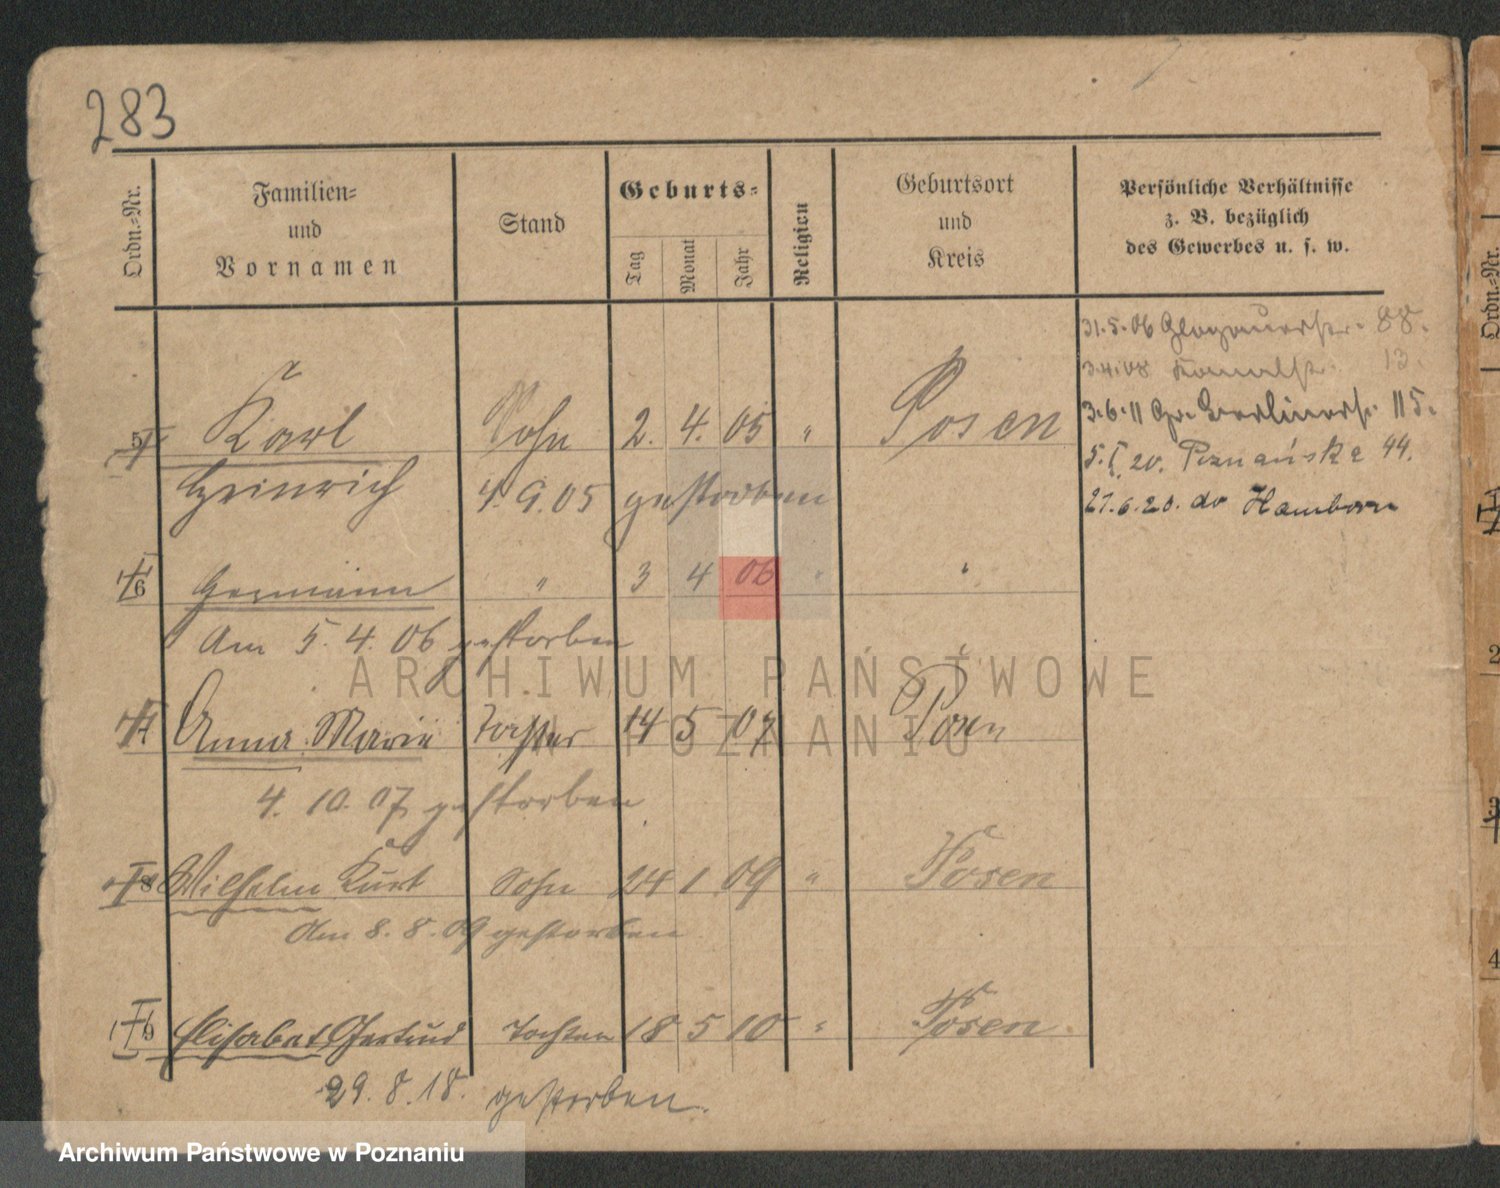 283
Ordn.=Nr.
Familien=
und
Vornamen
Stand
Geburts=
Tag
Monat
Jahr
Religion
Geburtsort
und
Kreis
Persönliche Verhältnisse
z. B. bezüglich
des Gewerbes u. s. w.
31.5.06 Glogauerstr. 88.
3.4.08 13.
3.6.11 Gr. Berlinerstr. 115.
5.I.20. Poznańska 44.
27.6.20. do Hamborn
5 Karl Sohn 2. 4. 05 " Posen
Heinrich 4.9.05 gestorben
6 Hermann " 3 4 06 " "
Am 5.4.06 gestorben
Anna Marie Tochter 14 5 07 Posen
4.10.07 gestorben
8 Wilhelm Kurt Sohn 24 1 09 " Posen
Am 8.8.09 gestorben
9 Elisabet Gertrud Tochter 18 5 10 " Posen.
29.8.18. gestorben.
ARCHIWUM PAŃSTWOWE
W POZNANIU
Ordn.=Nr.
2
3
4
Archiwum Państwowe w Poznaniu